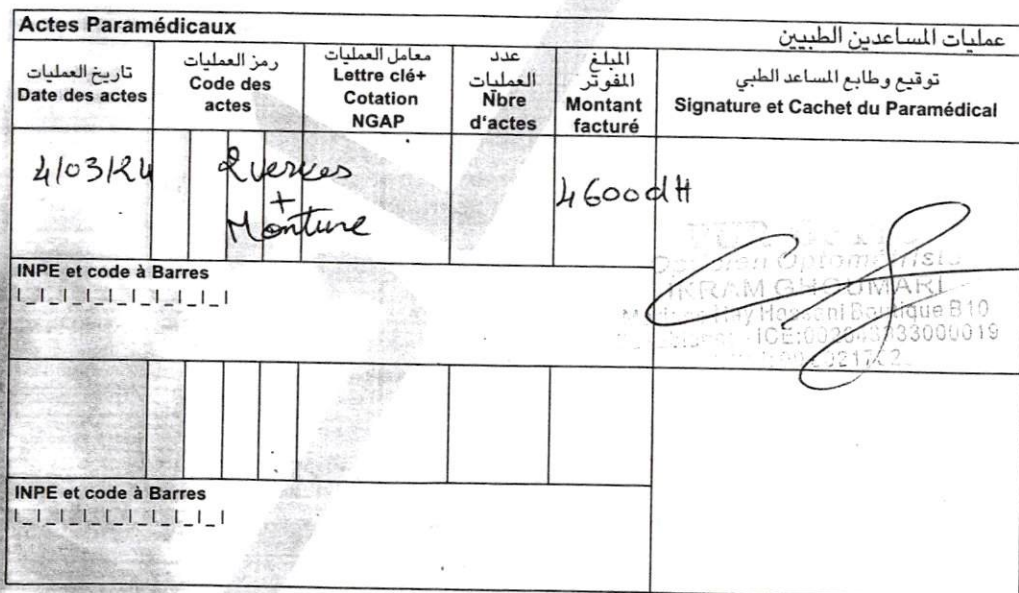 Actes Paramédicaux
عمليات المساعدين الطبيين
تاريخ العمليات
Date des actes
رمز العمليات
Code des
actes
معامل العمليات
Lettre clé+
Cotation
NGAP
عدد
العمليات
Nbre
d'actes
المبلغ
المفوتر
Montant
facturé
توقيع وطابع المساعد الطبي
Signature et Cachet du Paramédical
4/03/24
2 verres
+
Monture
4600dH
Opticien Optométriste
IKRAM GHOUMARI
Hay Hassani Boutique B10
INPE et code à Barres
INPE et code à Barres